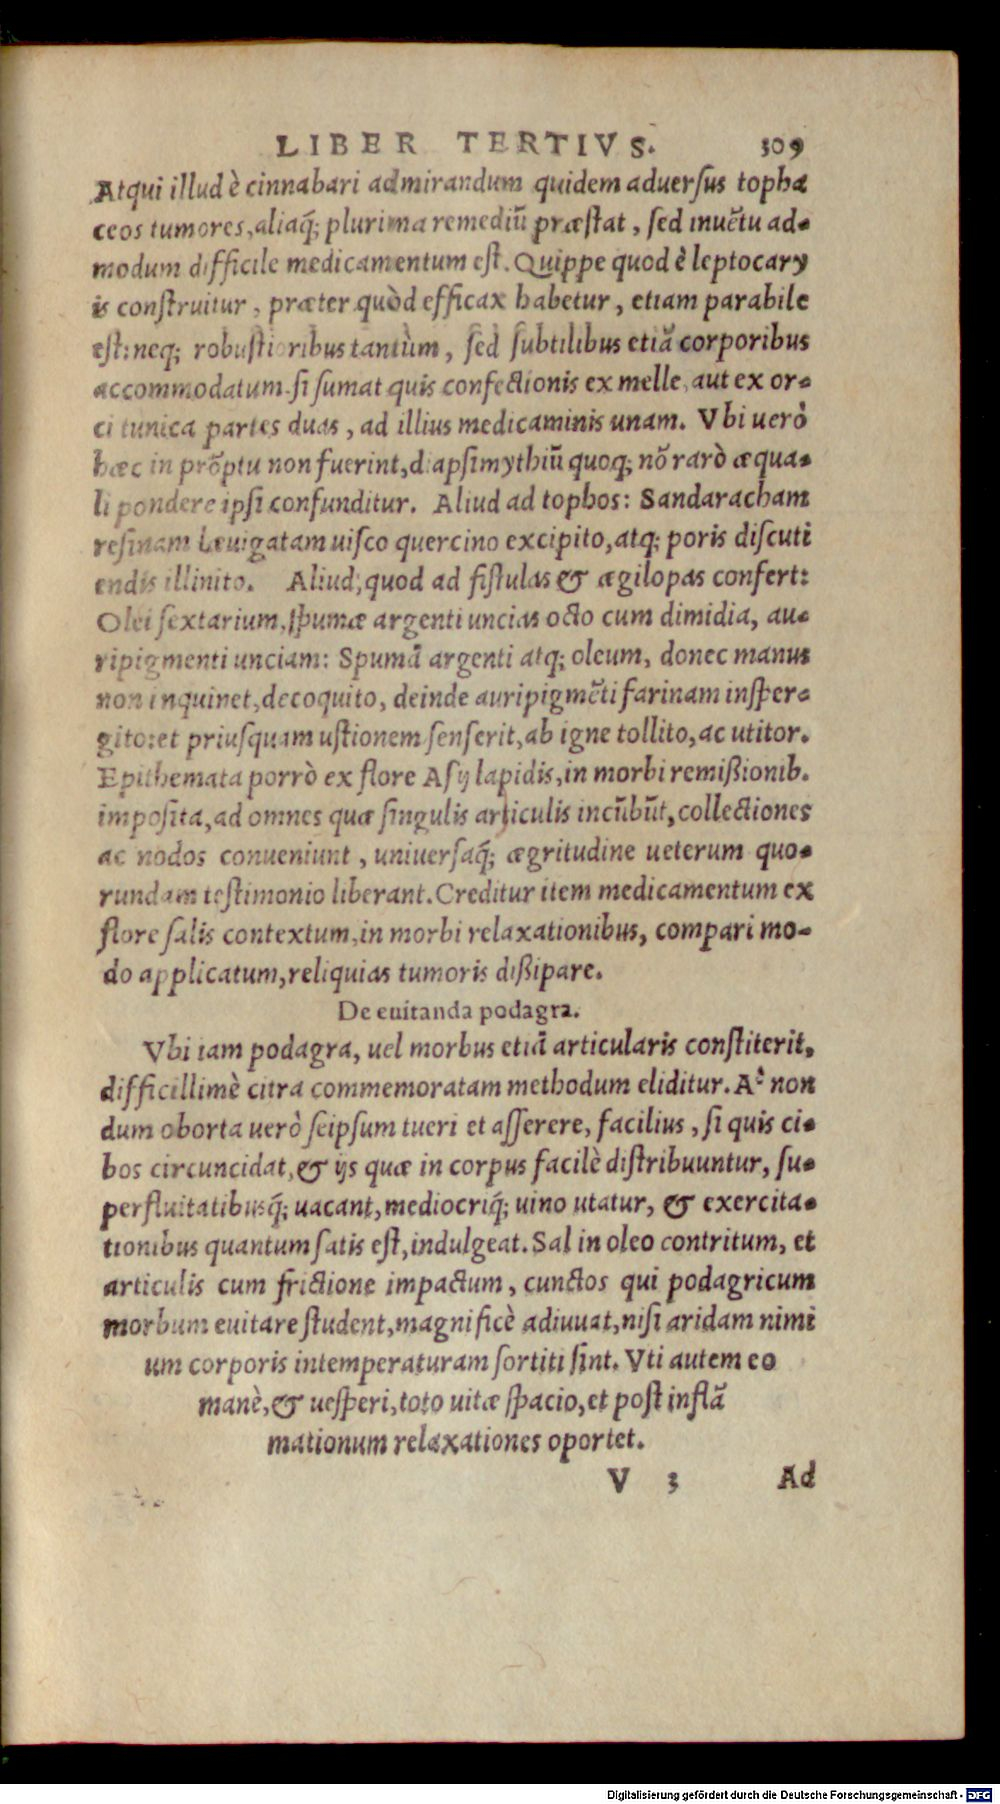 LIBER TERTIVS. 309
Atqui illud è cinnabari admirandum quidem aduersus topha
ceos tumores, aliaq́; plurima remediũ præstat, sed inuẽtu ad-
modum difficile medicamentum est. Quippe quod è leptocary
is construitur, præter quòd efficax habetur, etiam parabile
est: neq; robustioribus tantùm, sed subtilibus etiã corporibus
accommodatum. si sumat quis confectionis ex melle, aut ex or-
ci tunica partes duas, ad illius medicaminis unam. Vbi uerò
hæc in prõptu non fuerint, diapsimythiũ quoq; nõ rarò æqua-
li pondere ipsi confunditur. Aliud ad tophos: Sandaracham
resinam læuigatam uisco quercino excipito, atq; poris discuti
endis illinito. Aliud, quod ad fistulas & ægilopas confert:
Olei sextarium, spumæ argenti uncias octo cum dimidia, au-
ripigmenti unciam: Spumã argenti atq; oleum, donec manus
non inquinet, decoquito, deinde auripigmẽti farinam insper-
gito: et priusquam ustionem senserit, ab igne tollito, ac utitor.
Epithemata porrò ex flore Asij lapidis, in morbi remißionib.
imposita, ad omnes quæ singulis articulis incũbũt, collectiones
ac nodos conueniunt, uniuersaq́; ægritudine ueterum quo-
rundam testimonio liberant. Creditur item medicamentum ex
flore salis contextum, in morbi relaxationibus, compari mo-
do applicatum, reliquias tumoris dißipare.
De euitanda podagra.
Vbi iam podagra, uel morbus etiã articularis constiterit,
difficillimè citra commemoratam methodum eliditur. At non
dum oborta uerò seipsum tueri et asserere, facilius, si quis ci-
bos circuncidat, & ijs quæ in corpus facilè distribuuntur, su-
perfluitatibusq́; uacant, mediocriq́; uino utatur, & exercita-
tionibus quantum satis est, indulgeat. Sal in oleo contritum, et
articulis cum frictione impactum, cunctos qui podagricum
morbum euitare student, magnificè adiuuat, nisi aridam nimi
um corporis intemperaturam sortiti sint. Vti autem eo
manè, & uesperi, toto uitæ spacio, et post inflã
mationum relaxationes oportet.
V 3 Ad
Digitalisierung gefördert durch die Deutsche Forschungsgemeinschaft - DFG